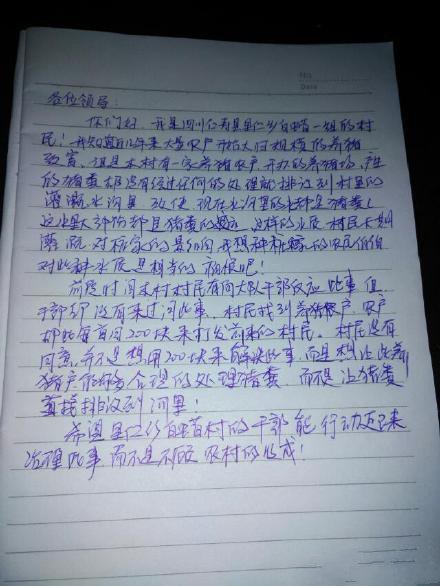 No
Date
各位领导:
你们好,我是四川仁寿县里仁乡 村一组的村
民!我知道近几年来大量农户开始大规模的养猪
致富,但是本村有一家养猪农户,开办的养猪场,产生
的猪粪都没有经过任何的处理就排泄到村里的
灌溉水河里,致使现在水河里的水都是猪粪!
这水里大部份都是猪粪的 ,这样的水质,村民长期
灌溉对 家的是 ,我想种庄稼的农民伯伯
对此种水质是相当的 吧!
前段时间本村村民有向大队干部反应此事,但
干部却没有来过问此事,村民找到养猪户,农户
却以每亩田200块来打发前来的村民。村民没有
同意,并不是想用200块来解决此事,而是想让此养
猪户 合理的处理猪粪,而不让猪粪
直接排泄到河里!
希望里仁乡 村的干部能行动起来
治理此事,而不是不顾农村的收成!